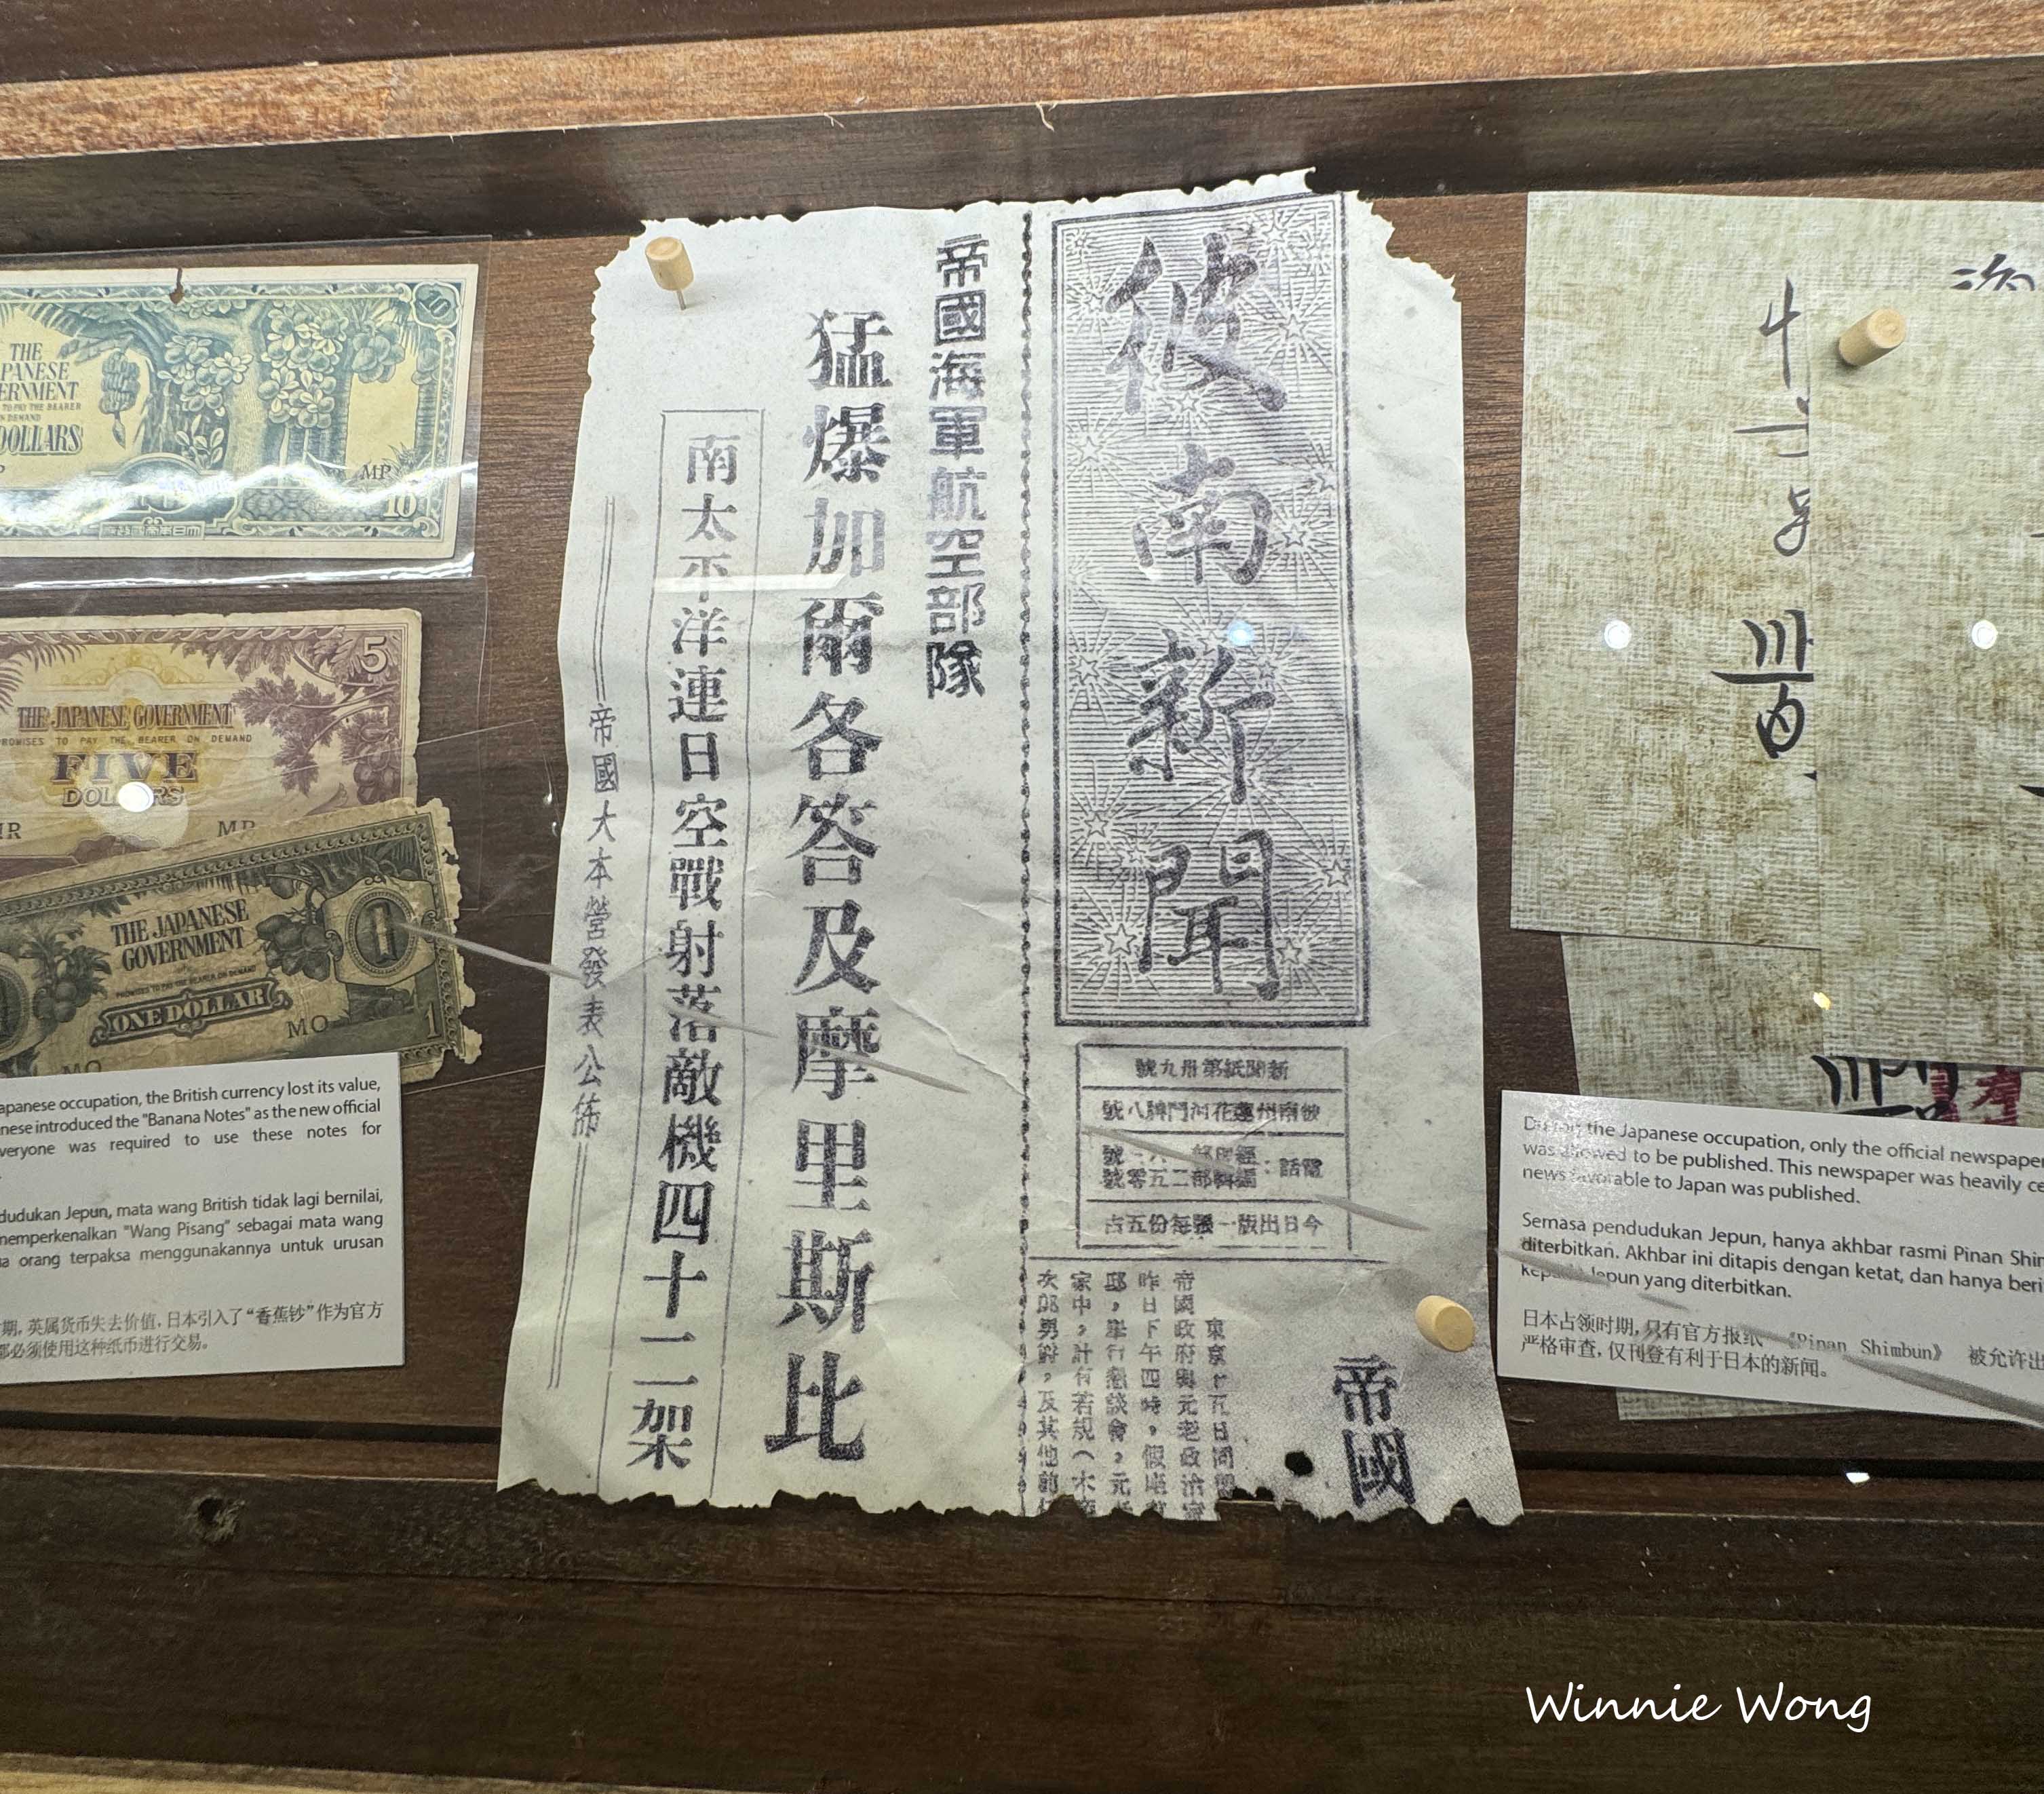 10
THE
PANESE
ERNMENT
TO PAY THE BEARER
ON DEMAND
DOLLARS
MP
10
5
THE JAPANESE GOVERNMENT
ROMISES TO PAY THE BEARER ON DEMAND
FIVE
DOLLARS
MR
MR
THE JAPANESE
GOVERNMENT
PROMISES TO PAY THE BEARER ON DEMAND
ONE DOLLAR
MO
MO
1
1
apanese occupation, the British currency lost its value,
nese introduced the "Banana Notes" as the new official
veryone was required to use these notes for
dudukan Jepun, mata wang British tidak lagi bernilai,
memperkenalkan "Wang Pisang" sebagai mata wang
a orang terpaksa menggunakannya untuk urusan
期, 英属货币失去价值, 日本引入了“香蕉钞”作为官方
都必须使用这种纸币进行交易。
彼南新聞
號九卅第紙聞新
號八牌門河花蓮州南彼
電話:
號零五二部輯編
占五份每張一版出日今
帝國
帝國政府與元老政治
昨日下午四時,假
邸,舉行懇談會,元
家中,計有若規(木
次郎男爵,及其他前
帝國海軍航空部隊
猛爆加爾各答及摩里斯比
南太平洋連日空戰射落敵機四十二架
帝國大本營發表公佈
During the Japanese occupation, only the official newspaper
was allowed to be published. This newspaper was heavily ce
news favorable to Japan was published.
Semasa pendudukan Jepun, hanya akhbar rasmi Pinan Shim
diterbitkan. Akhbar ini ditapis dengan ketat, dan hanya beri
kepada Jepun yang diterbitkan.
日本占领时期, 只有官方报纸 《Pinan Shimbun》 被允许出
严格审查, 仅刊登有利于日本的新闻。
Winnie Wong